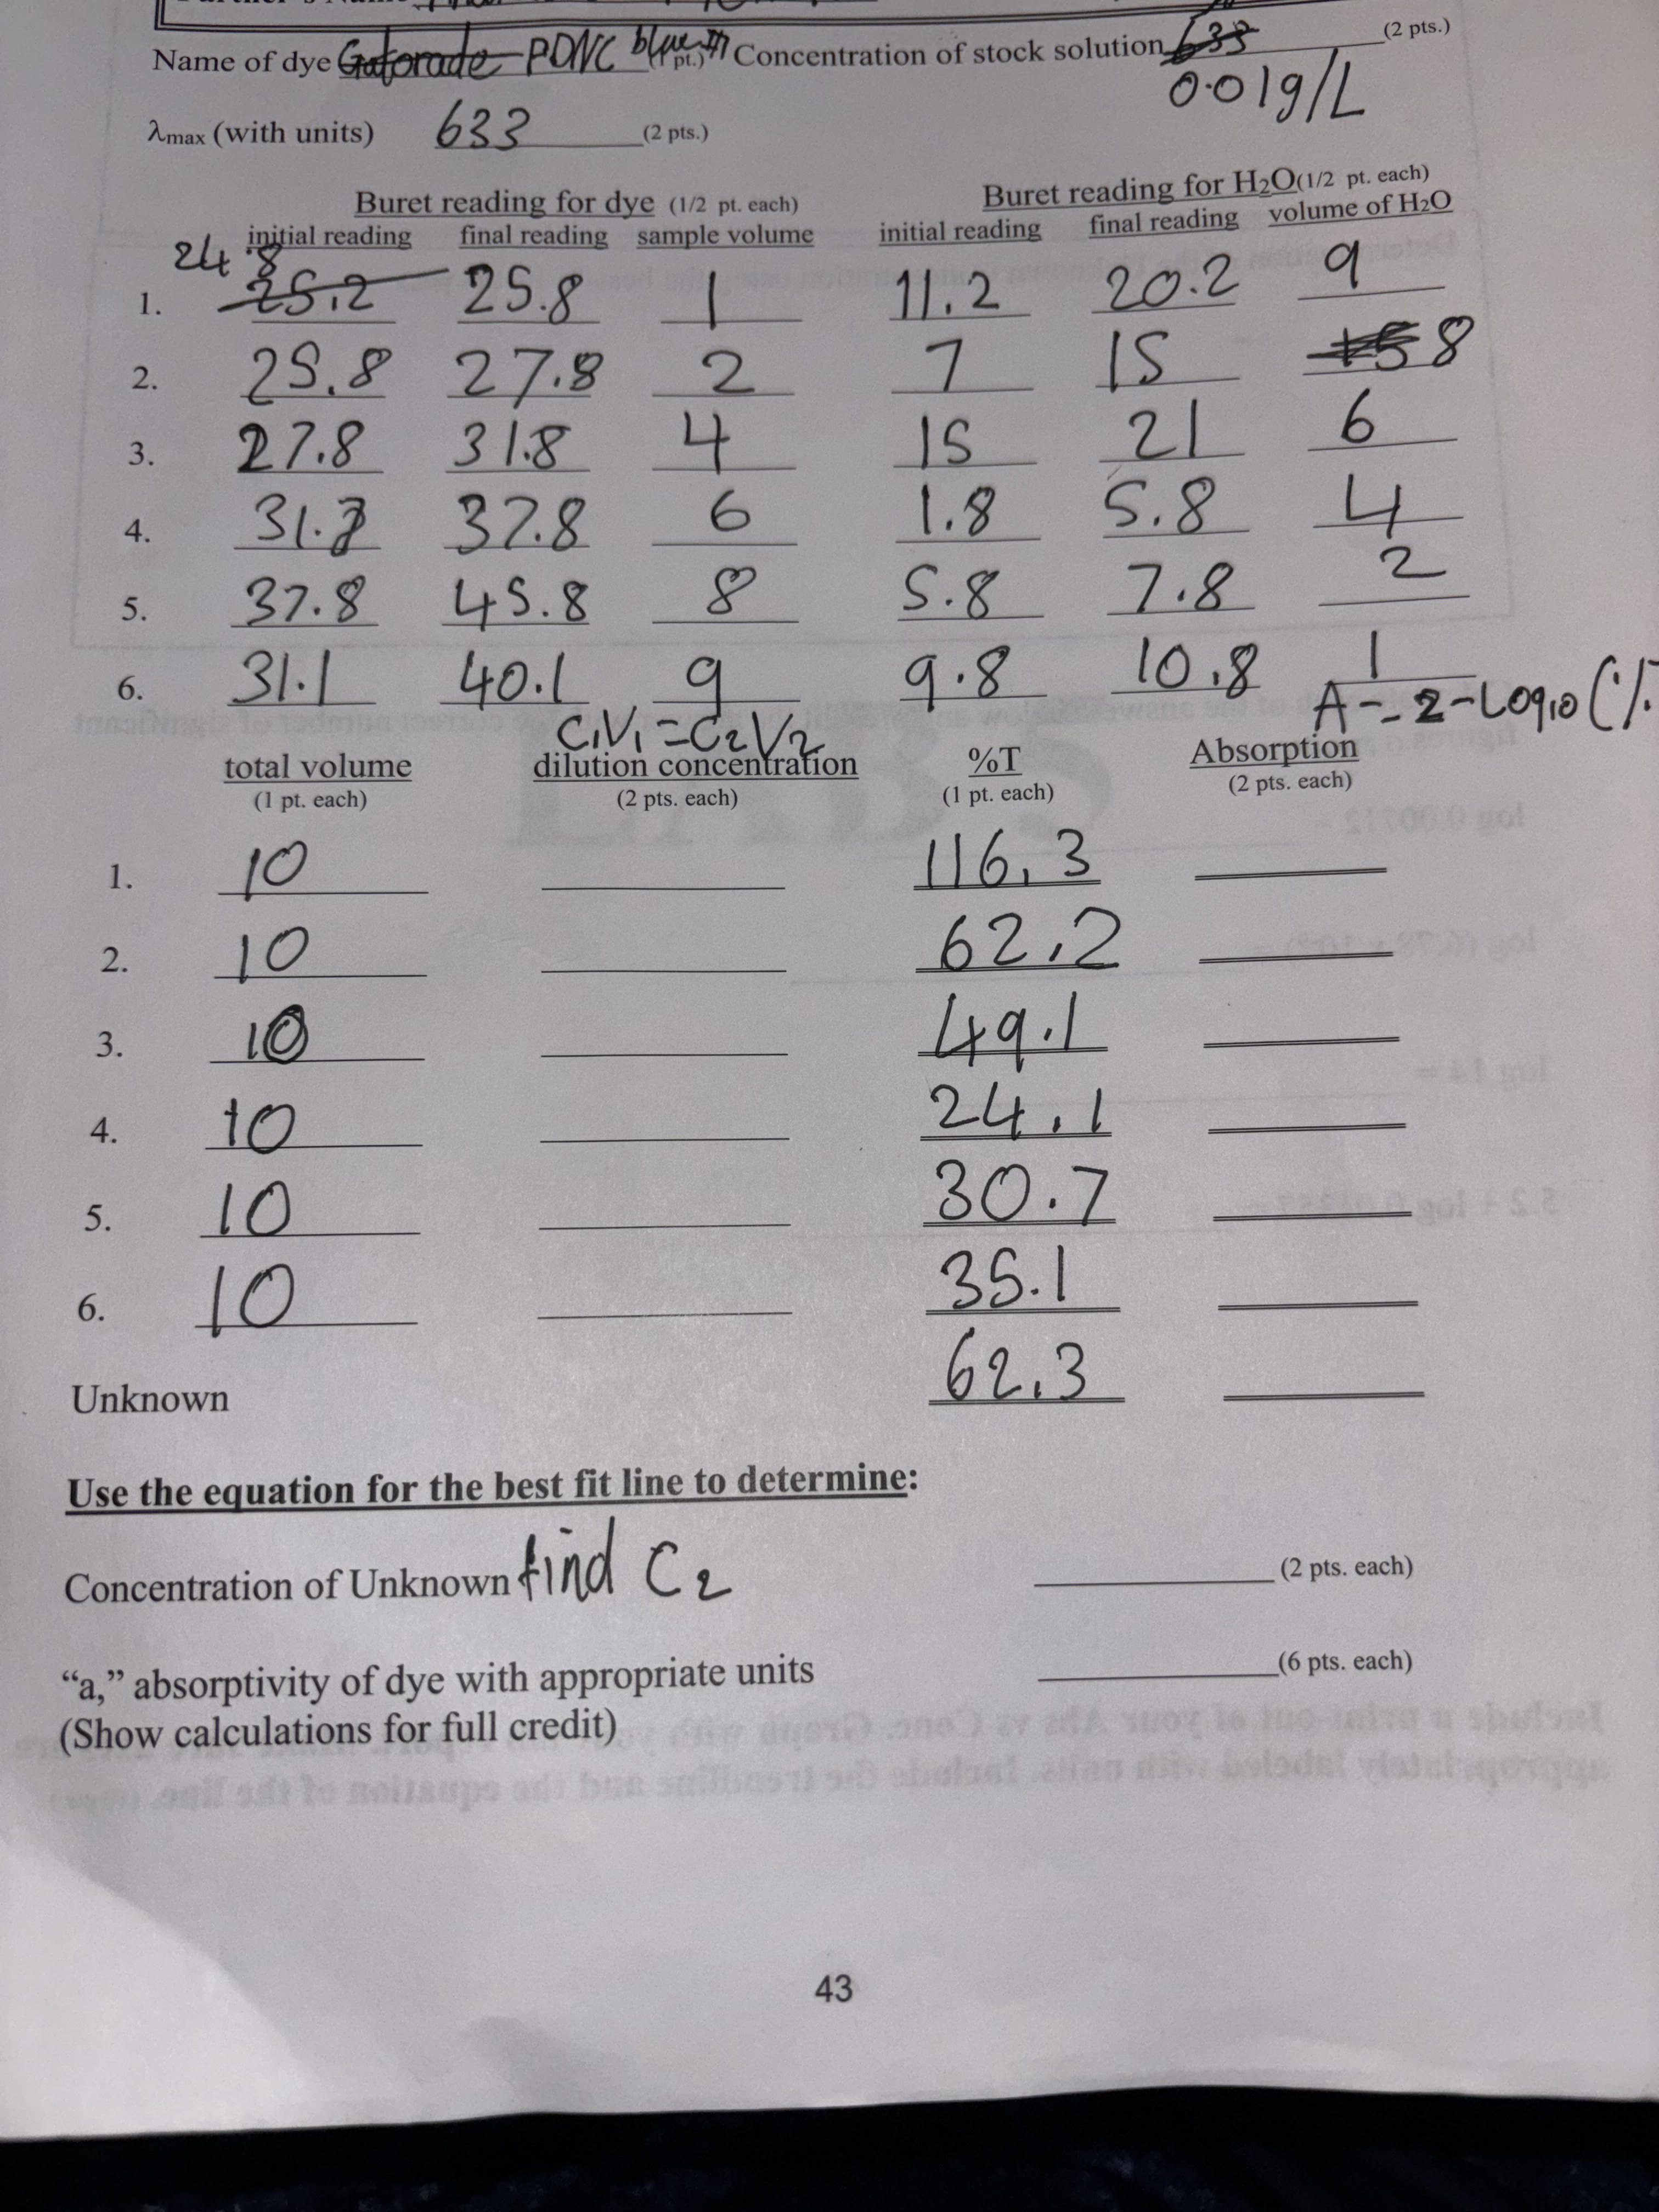 Name of dye Gatorade PDNC blue #1 (1 pt.) Concentration of stock solution 633 (2 pts.)
0.01g/L
λmax (with units) 633 (2 pts.)
Buret reading for dye (1/2 pt. each) Buret reading for H2O(1/2 pt. each)
initial reading final reading sample volume initial reading final reading volume of H2O
24.8
1. 25.2 25.8 1 11.2 20.2 9
2. 25.8 27.8 2 7 15 8
3. 27.8 31.8 4 15 21 6
4. 31.8 37.8 6 1.8 5.8 4
5. 37.8 45.8 8 5.8 7.8 2
6. 31.1 40.1 9 9.8 10.8 1
C1V1=C2V2 A = 2-Log10 (%
total volume dilution concentration %T Absorption
(1 pt. each) (2 pts. each) (1 pt. each) (2 pts. each)
1. 10 116.3
2. 10 62.2
3. 10 49.1
4. 10 24.1
5. 10 30.7
6. 10 35.1
Unknown 62.3
Use the equation for the best fit line to determine:
Concentration of Unknown find C2 (2 pts. each)
“a,” absorptivity of dye with appropriate units (6 pts. each)
(Show calculations for full credit)
43